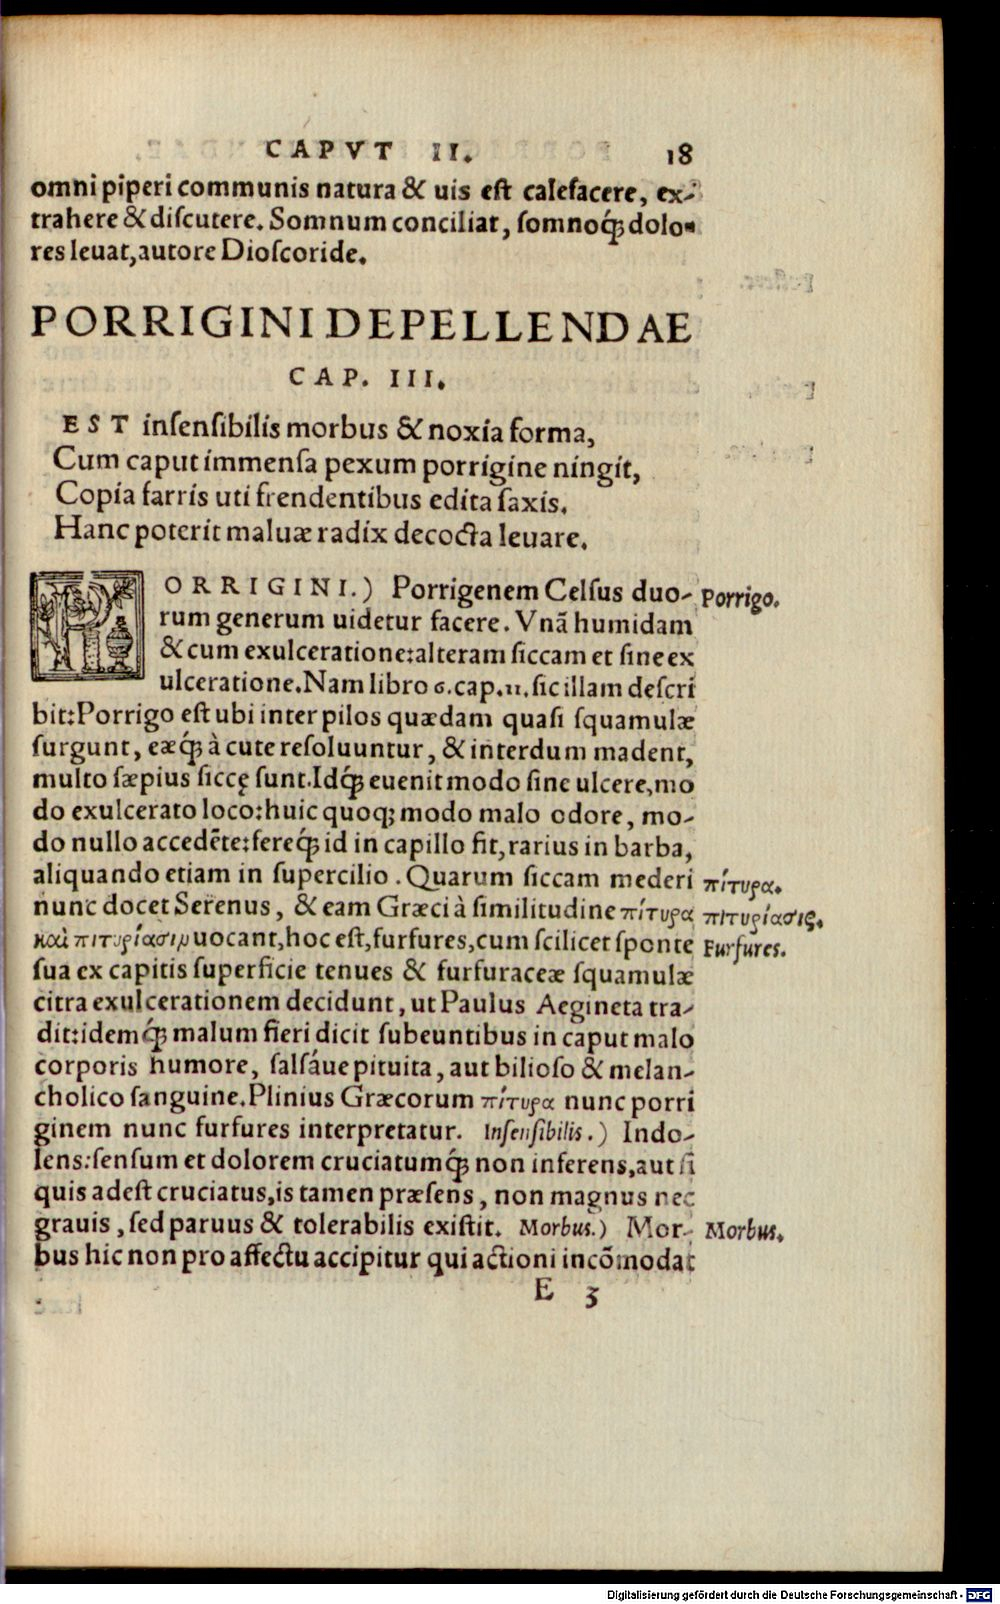 CAPVT II. 18
omni piperi communis natura & uis est calefacere, ex-
trahere & discutere. Somnum conciliat, somnoq́; dolo-
res leuat, autore Dioscoride.
PORRIGINI DEPELLENDAE
CAP. III.
EST insensibilis morbus & noxia forma,
Cum caput immensa pexum porrigine ningit,
Copia farris uti frendentibus edita saxis.
Hanc poterit maluæ radix decocta leuare.
PORRIGINI.) Porrigenem Celsus duo- Porrigo.
rum generum uidetur facere. Vnã humidam
& cum exulceratione: alteram siccam et sine ex
ulceratione. Nam libro 6. cap. 11. sic illam descri
bit: Porrigo est ubi inter pilos quædam quasi squamulæ
surgunt, eæq́; à cute resoluuntur, & interdum madent,
multo sæpius siccę sunt. Idq́; euenit modo sine ulcere, mo
do exulcerato loco: huic quoq; modo malo odore, mo-
do nullo accedẽte: fereq́; id in capillo fit, rarius in barba,
aliquando etiam in supercilio. Quarum siccam mederi πίτυρα.
nunc docet Serenus, & eam Græci à similitudine πίτυρα πιτυρίασις.
καὶ πιτυρίασιμ uocant, hoc est, furfures, cum scilicet sponte Furfures.
sua ex capitis superficie tenues & furfuraceæ squamulæ
citra exulcerationem decidunt, ut Paulus Aegineta tra-
dit: idemq́; malum fieri dicit subeuntibus in caput malo
corporis humore, salsáue pituita, aut bilioso & melan-
cholico sanguine. Plinius Græcorum πίτυρα nunc porri
ginem nunc furfures interpretatur. Insensibilis.) Indo-
lens: sensum et dolorem cruciatumq́; non inferens, aut si
quis adest cruciatus, is tamen præsens, non magnus nec
grauis, sed paruus & tolerabilis existit. Morbus.) Mor- Morbus.
bus hic non pro affectu accipitur qui actioni incõmodat
E 3
Digitalisierung gefördert durch die Deutsche Forschungsgemeinschaft - DFG